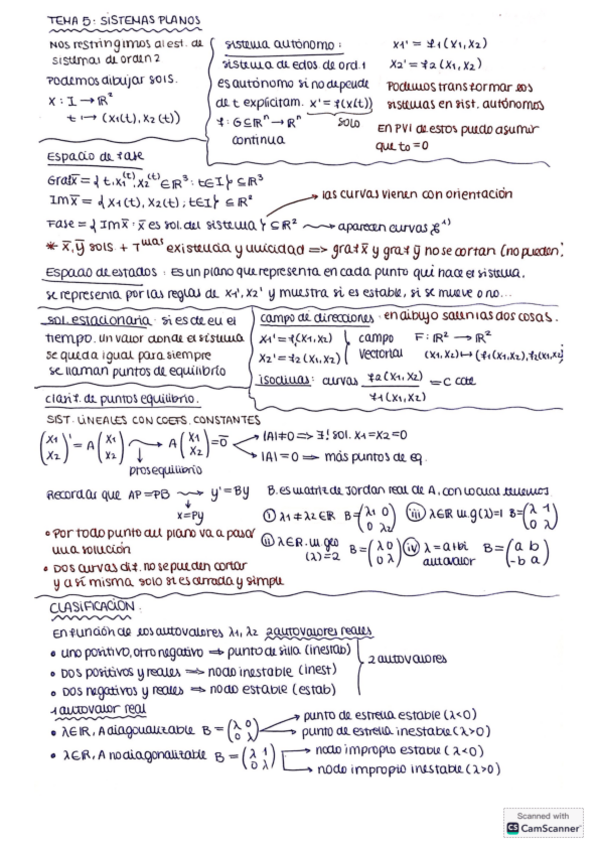 TEMA 5: SISTEMAS PLANOS
Nos restringimos al est. de
sistemas de orden 2
Podemos dibujar sols.
X : I → ℝ²
t ↦ (x₁(t), x₂(t))
sistema autónomo:
sistema de edos. de ord. 1
es autónomo si no depende
de t explicitam. x' = f(x(t))
f : G ⊆ ℝⁿ → ℝⁿ SOLO
continua
x₁' = f₁(x₁, x₂)
x₂' = f₂(x₁, x₂)
Podemos transformar los
sistemas en sist. autónomos
EN PVI de estos puedo asumir
que t₀ = 0
Espacio de fase
Graf x̄ = { t, x₁(t), x₂(t) ∈ ℝ³ : t ∈ I } ⊆ ℝ³
Im x̄ = { x₁(t), x₂(t); t ∈ I } ⊆ ℝ²
→ las curvas vienen con orientación
Fase = { Im x̄ : x̄ es sol. del sistema } ⊆ ℝ² ⟿ aparecen curvas ℰ¹⁾
* x̄, ȳ sols + Tmas existencia y unicidad ⇒ graf x̄ y graf ȳ no se cortan (no pueden)
Espacio de estados : es un plano que representa en cada punto qué hace el sistema.
se representa por las reglas de x₁', x₂' y muestra si es estable, si se mueve o no...
sol. estacionaria : si es de eu el
tiempo. un valor donde el sistema
se queda igual para siempre
se llaman puntos de equilibrio
campo de direcciones : en dibujo salen las dos cosas.
x₁' = f₁(x₁, x₂) } campo F: ℝ² → ℝ²
x₂' = f₂(x₁, x₂) } vectorial (x₁, x₂) ↦ (f₁(x₁, x₂), f₂(x₁, x₂)
isoclinas : curvas f₂(x₁, x₂) / f₁(x₁, x₂) = c cte
clasif. de puntos equilibrio.
SIST. LINEALES CON COEFS. CONSTANTES
(x₁ x₂)' = A (x₁ x₂) ⟿ A (x₁ x₂) = 0̄ → |A| ≠ 0 ⇒ ∃! sol. x₁ = x₂ = 0
→ |A| = 0 ⇒ más puntos de eq.
ptos equilibrio
Recordar que AP = PB ⟿ y' = By
x = Py
B es matriz de Jordan real de A, con lo cual tenemos
ⓘ λ₁ ≠ λ₂ ∈ ℝ B = (λ₁ 0 / 0 λ₂) ⓘⓘⓘ λ ∈ ℝ m.g(λ) = 1 B = (λ 1 / 0 λ)
ⓘⓘ λ ∈ ℝ. m geo (λ) = 2 B = (λ 0 / 0 λ) ⓘⓥ λ = a + bi autovalor B = (a b / -b a)
• Por todo punto del plano va a pasar
una solución
• DOS curvas dif. no se pueden cortar
y a sí misma solo si es cerrada y simple
CLASIFICACIÓN.
En función de los autovalores λ₁, λ₂ 2 autovalores reales
• uno positivo, otro negativo ⇒ punto de silla (inestab)
• DOS positivos y reales ⇒ nodo inestable (inest)
• DOS negativos y reales ⇒ nodo estable (estab)
2 autovalores
1 autovalor real
• λ ∈ ℝ, A diagonalizable B = (λ 0 / 0 λ) → punto de estrella estable (λ<0)
→ punto de estrella inestable (λ>0)
• λ ∈ ℝ, A no diagonalizable B = (λ 1 / 0 λ) → nodo impropio estable (λ<0)
→ nodo impropio inestable (λ>0)
Scanned with
CS CamScanner